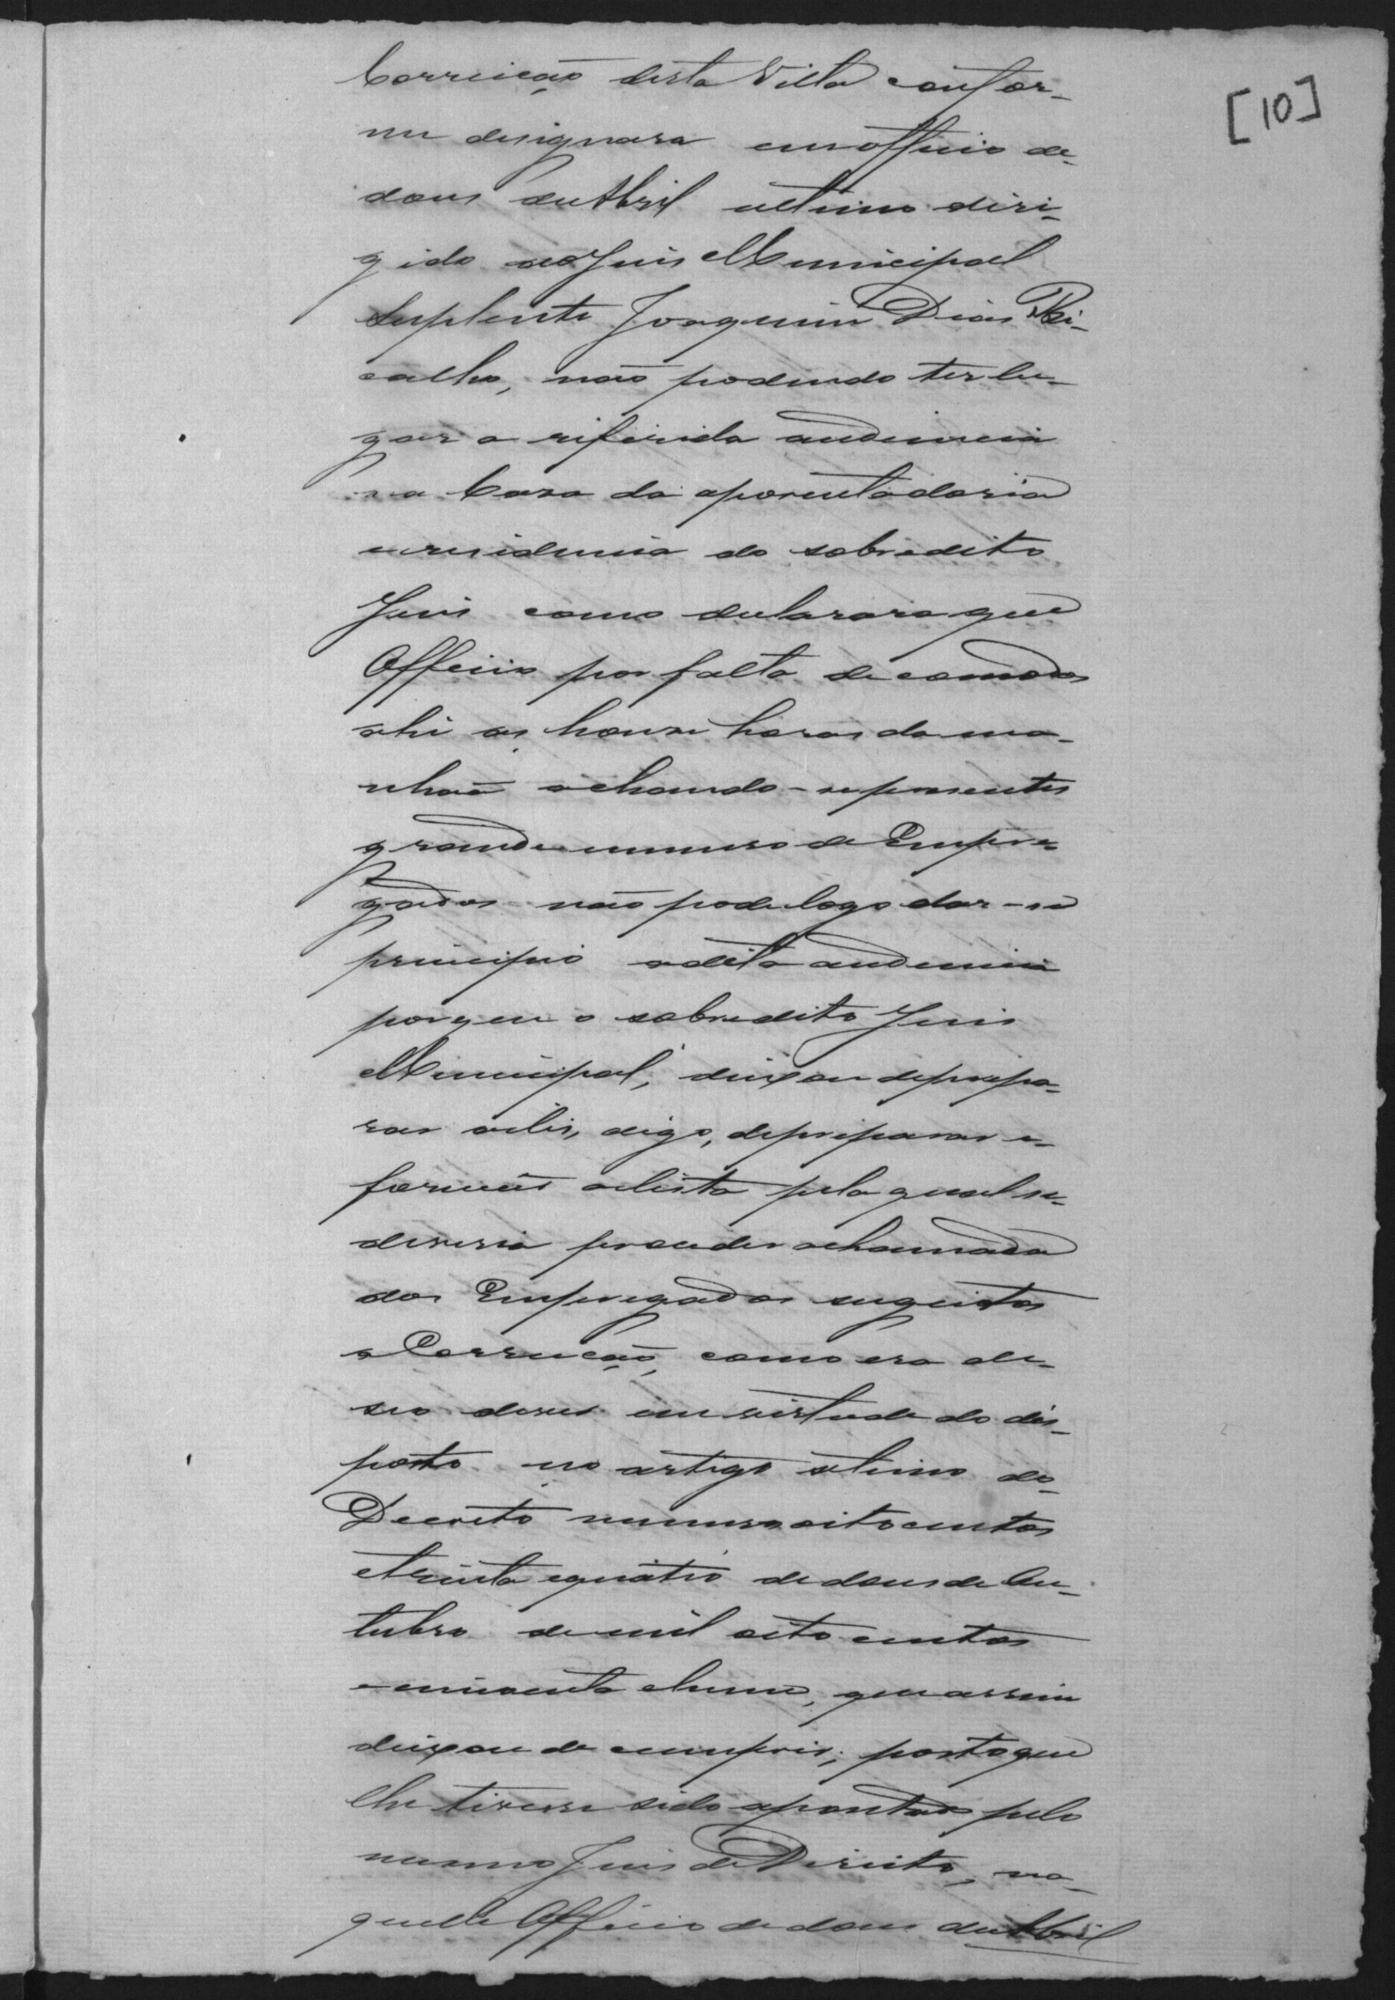 [10]
Correição desta Villa confor-
me designara em officio de
dous de Abril ultimo diri-
gido ao Juis Municipal
Suplente Joaquim Dias Bi-
calho, não podendo ter lu-
gar a referida audiencia
na Casa da aposentadoria
e residencia do sobredito
Juis como declarara que
Officio por falta de comodos
ahi as honse horas da ma-
nhaã achando-se presentes
grande numero de Empre-
gados não pode logo dar-se
principio a dita audiencia
porque o sobredito Juis
Municipal, deixou de prepa-
rar a lis, digo, de preparar e
formar a lista pela qual se
deveria proceder a chamada
dos Empregados sugeitos
a Correição, como era de
seo dever em virtude do dis-
posto no artigo setimo do
Decreto numero oito centos
e trinta e quatro de dous de Ou-
tubro de mil oito centos
e cincoenta e hum, que assim
deixou de cumprir, posto que
lhe tivesse sido apontado pelo
mesmo Juis de Direito, na-
quelle Officio de dous de Abril